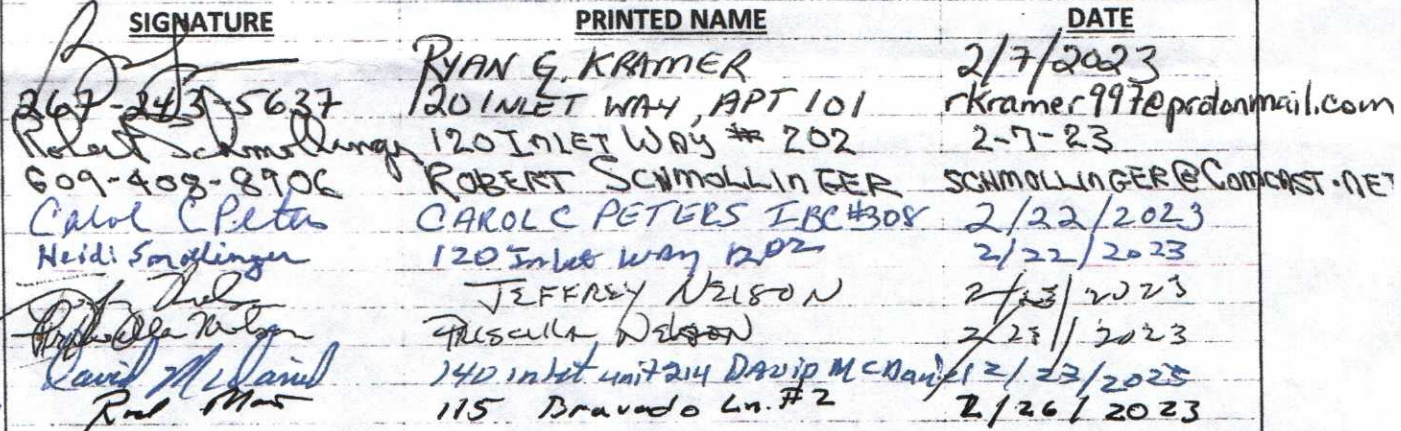 SIGNATURE PRINTED NAME DATE
RYAN G. KRAMER 2/7/2023
267-243-5637 120 INLET WAY, APT 101 rkramer997@protonmail.com
Robert Schmollinger 120 INLET WAY # 202 2-7-23
609-408-8906 ROBERT SCHMOLLINGER SCHMOLLINGER@COMCAST.NET
Carol C Peters CAROL C PETERS IBC #308 2/22/2023
Heidi 120 Inlet Way 2/22/2023
JEFFREY NELSON 2/23/2023
PRISCILLA NELSON 2/23/2023
David McDaniel 140 inlet unit 214 DAVID McDaniel 2/23/2023
115 Bravado Ln. #2 2/26/2023